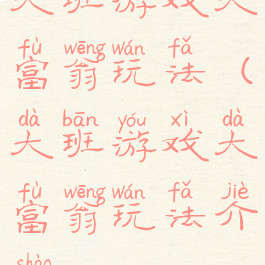 大班游戏大
fù wēng wán fǎ
富翁玩法(
dà bān yóu xì dà
大班游戏大
fù wēng wán fǎ jiè
富翁玩法介
shào